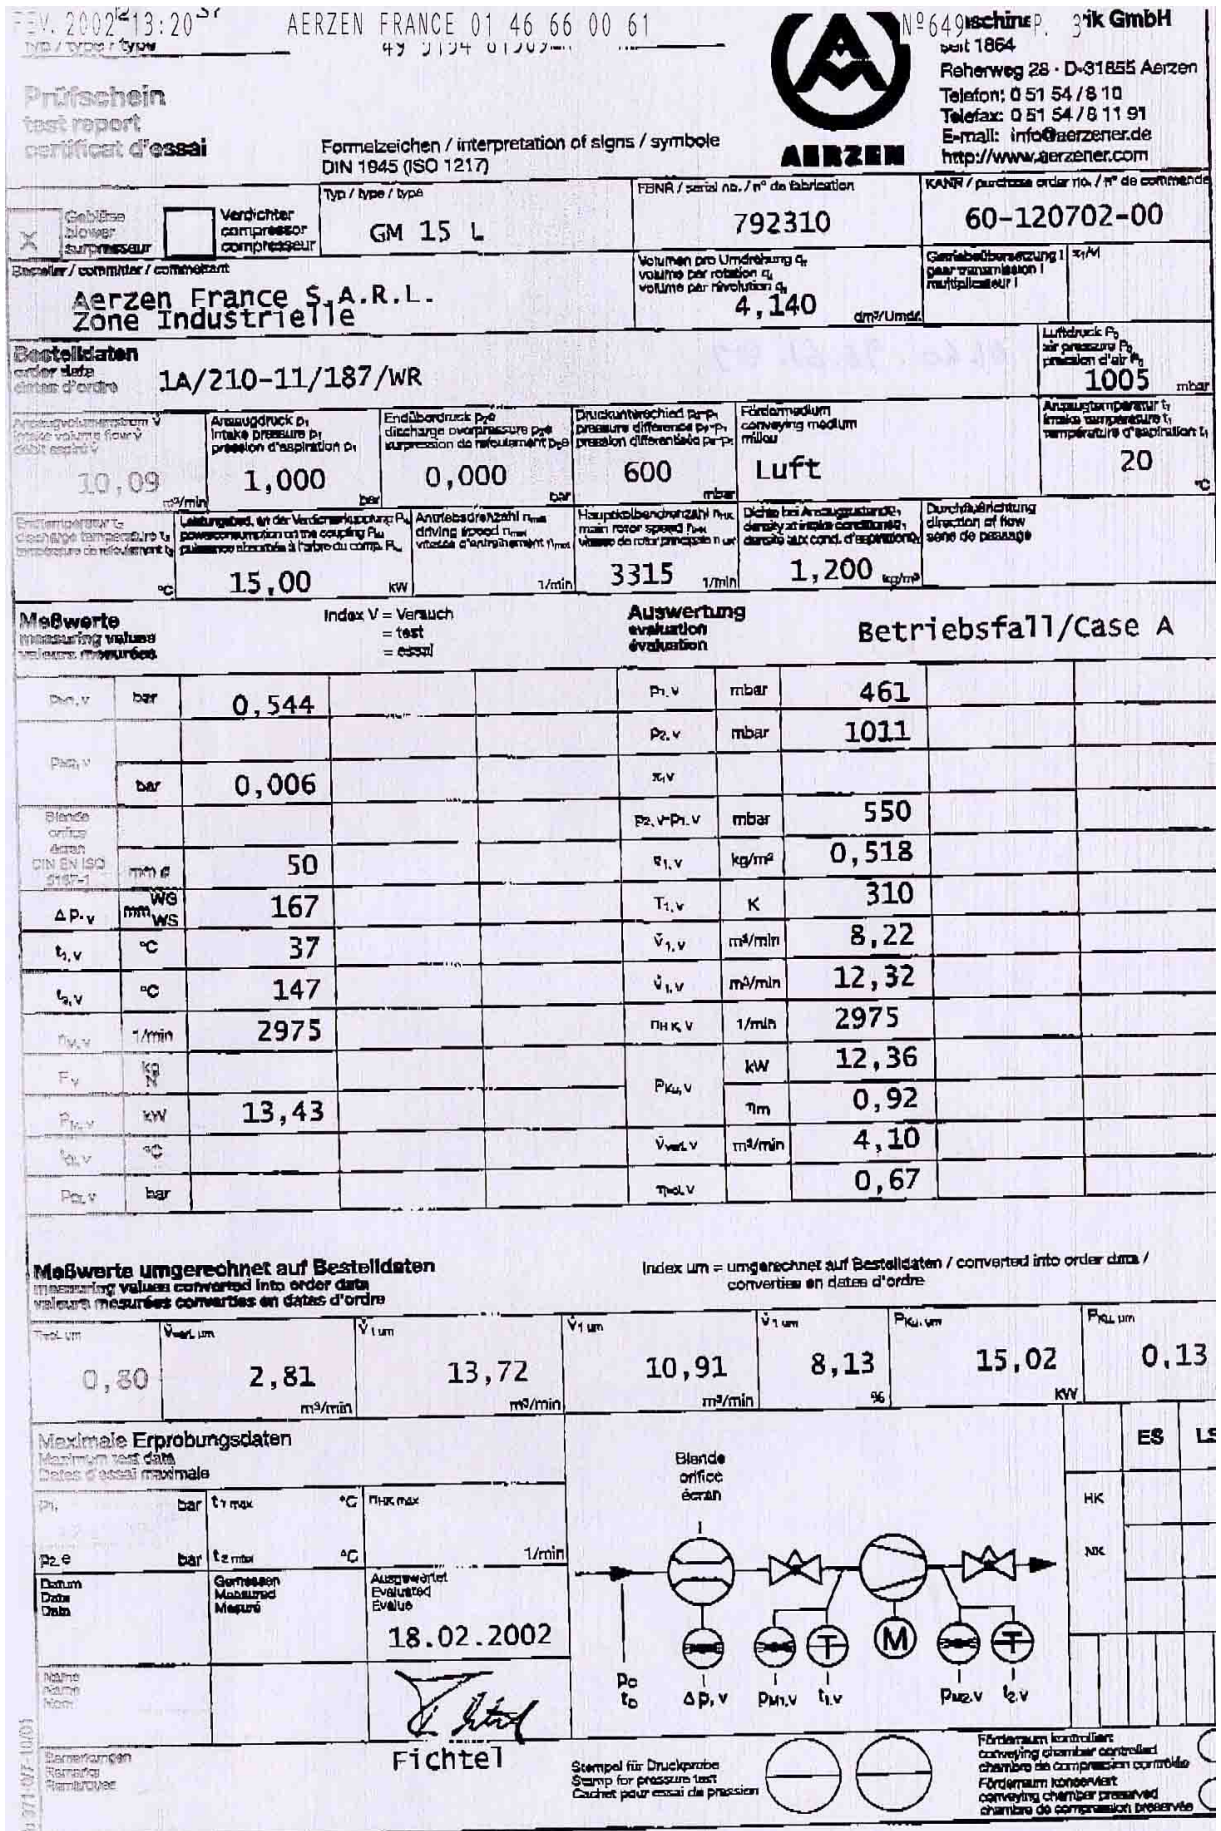 FEV. 2002 13:20 AERZEN FRANCE 01 46 66 00 61 Nº649 P. 3
Typ / type / type
rik GmbH
seit 1864
Reherweg 28 · D-31855 Aerzen
Telefon: 0 51 54 / 8 10
Telefax: 0 51 54 / 8 11 91
E-mail: info@aerzener.de
http://www.aerzener.com
AERZEN
Prüfschein
test report
certificat d'essai
Formelzeichen / interpretation of signs / symbole
DIN 1945 (ISO 1217)
X
Gebläse
blower
surpresseur
Verdichter
compressor
compresseur
Typ / type / type
GM 15 L
FBNR / serial no. / n° de fabrication
792310
KANR / purchase order no. / n° de commende
60-120702-00
Besteller / committer / commettant
Aerzen France S.A.R.L.
Zone Industrielle
Volumen pro Umdrehung q
volume per rotation q
volume par révolution q
4,140 dm³/Umdr.
Getriebeübersetzung i
gear transmission i
multiplicateur i
Bestelldaten
order data
dates d'ordre
1A/210-11/187/WR
Luftdruck P₀
air pressure P₀
pression d'air P₀
1005 mbar
Ansaugvolumenstrom V̇
intake volume flow V̇
débit aspiré V̇
10,09 m³/min
Ansaugdruck p₁
Intake pressure p₁
pression d'aspiration p₁
1,000 bar
Endüberdruck p₂e
discharge overpressure p₂e
surpression de refoulement p₂e
0,000 bar
Druckunterschied p₂-p₁
pressure difference p₂-p₁
pression differentielle p₂-p₁
600 mbar
Fördermedium
conveying medium
milieu
Luft
Ansaugtemperatur t₁
intake temperature t₁
température d'aspiration t₁
20 °C
Endtemperatur t₂
discharge temperature t₂
température de refoulement t₂
°C
15,00 kW
Antriebsdrehzahl n mot
driving speed n mot
vitesse d'entraînement n mot
1/min
Hauptkolbendrehzahl n HK
main rotor speed n HK
vitesse de rotor principale n HK
3315 1/min
Dichte bei Ansaugzustand
density at intake conditions
densité aux cond. d'aspiration
1,200 kg/m³
Durchflußrichtung
direction of flow
sens de passage
Meßwerte
measuring values
valeurs mesurées
Index V = Versuch
= test
= essai
Auswertung
evaluation
évaluation
Betriebsfall/Case A
pM1,V bar 0,544 p1,V mbar 461
p2,V mbar 1011
pM2,V bar 0,006 π,V
Blende
orifice
écran
DIN EN ISO
5167-1
p2,V-p1,V mbar 550
mm ø 50 ϱ1,V kg/m³ 0,518
Δp,V mm WG WS 167 T1,V K 310
t1,V °C 37 V̇1,V m³/min 8,22
t2,V °C 147 V̇1,V m³/min 12,32
nV,V 1/min 2975 nHK,V 1/min 2975
FV kg N PKu,V kW 12,36
PM,V kW 13,43 ηm 0,92
°C V̇verl,V m³/min 4,10
bar ηvol,V 0,67
Meßwerte umgerechnet auf Bestelldaten
measuring values converted into order data
valeurs mesurées converties en dates d'ordre
Index um = umgerechnet auf Bestelldaten / converted into order data /
converties en dates d'ordre
ηvol, um V̇verl, um V̇1 um V̇1 um V̇1 um PKu, um PKu, um
0,80 2,81 13,72 10,91 8,13 15,02 0,13
m³/min m³/min m³/min % kW
Maximale Erprobungsdaten
Maximum test data
Dates d'essai maximale
p1, bar t1 max °C nHK max
p2 e bar t2 max °C 1/min
Datum
Date
Date
Gemessen
Measured
Mesuré
Ausgewertet
Evaluated
Evalue
18.02.2002
Name
Name
Nom
Fichtel
Bemerkungen
Remarks
Remarques
Blende
orifice
écran
M
T
T
p₀
t₀
Δp,V pM1,V t1,V pM2,V t2,V
ES LS
HK
NK
Stempel für Druckprobe
Stamp for pressure test
Cachet pour essai de pression
Förderraum kontrolliert
conveying chamber controlled
chambre de compression contrôlée
Förderraum konserviert
conveying chamber preserved
chambre de compression préservée